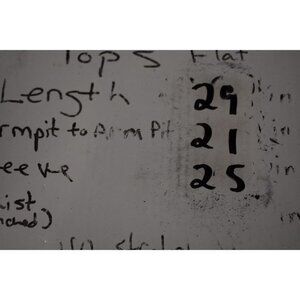 Tops Flat
Length - 29 in
rmpit to Arm Pit 21 in
eeve 25 in
ist